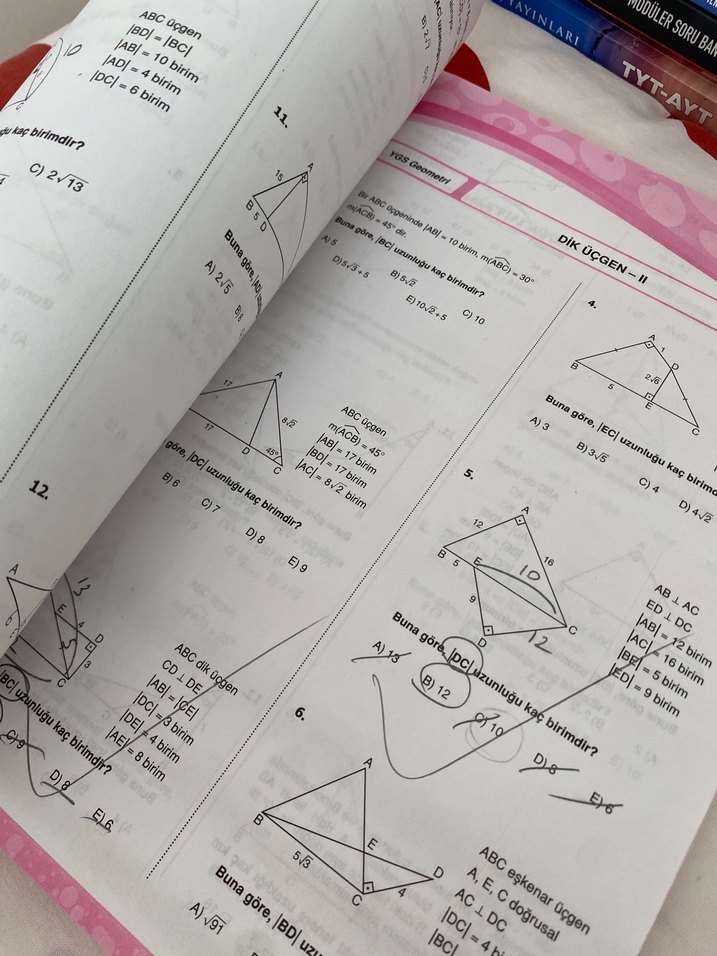 YAYINLARI
MODÜLER SORU BAN
TYT-AYT
ABC üçgen
|BD| = |BC|
|AB| = 10 birim
|AD| = 4 birim
|DC| = 6 birim
10
C
kaç birimdir?
C) 2√13
11.
A
15
B 5 D
Buna göre, |AD|
A) 2√5
12.
A
13
E
4
D
5
3
C
|BC| uzunluğu kaç birimdir?
C) 9
D) 8
E) 6
YGS Geometri
DİK ÜÇGEN – II
Bir ABC üçgeninde |AB| = 10 birim, m(ABC) = 30°
m(ACB) = 45° dir.
Buna göre, |BC| uzunluğu kaç birimdir?
A) 5
B) 5√2
C) 10
D) 5√3 + 5
E) 10√2 + 5
A
17
8√2
17
D
45°
C
ABC üçgen
m(ACB) = 45°
|AB| = 17 birim
|BD| = 17 birim
|AC| = 8√2 birim
göre, |DC| uzunluğu kaç birimdir?
B) 6
C) 7
D) 8
E) 9
ABC dik üçgen
CD ⊥ DE
|AB| = |CE|
|DC| = 3 birim
|DE| = 4 birim
|AE| = 8 birim
4.
A
1
D
B
2√6
5
E
C
Buna göre, |EC| uzunluğu kaç birimd
A) 3
B) 3√5
C) 4
D) 4√2
5.
A
12
16
B
5
E
10
9
D
12
C
AB ⊥ AC
ED ⊥ DC
|AB| = 12 birim
|AC| = 16 birim
|BE| = 5 birim
|ED| = 9 birim
Buna göre, |DC| uzunluğu kaç birimdir?
A) 13
B) 12
C) 10
D) 8
E) 6
6.
A
B
E
5√3
D
C
4
ABC eşkenar üçgen
A, E, C doğrusal
AC ⊥ DC
|DC| = 4 bi
|BC|
Buna göre, |BD| uzu
A) √91